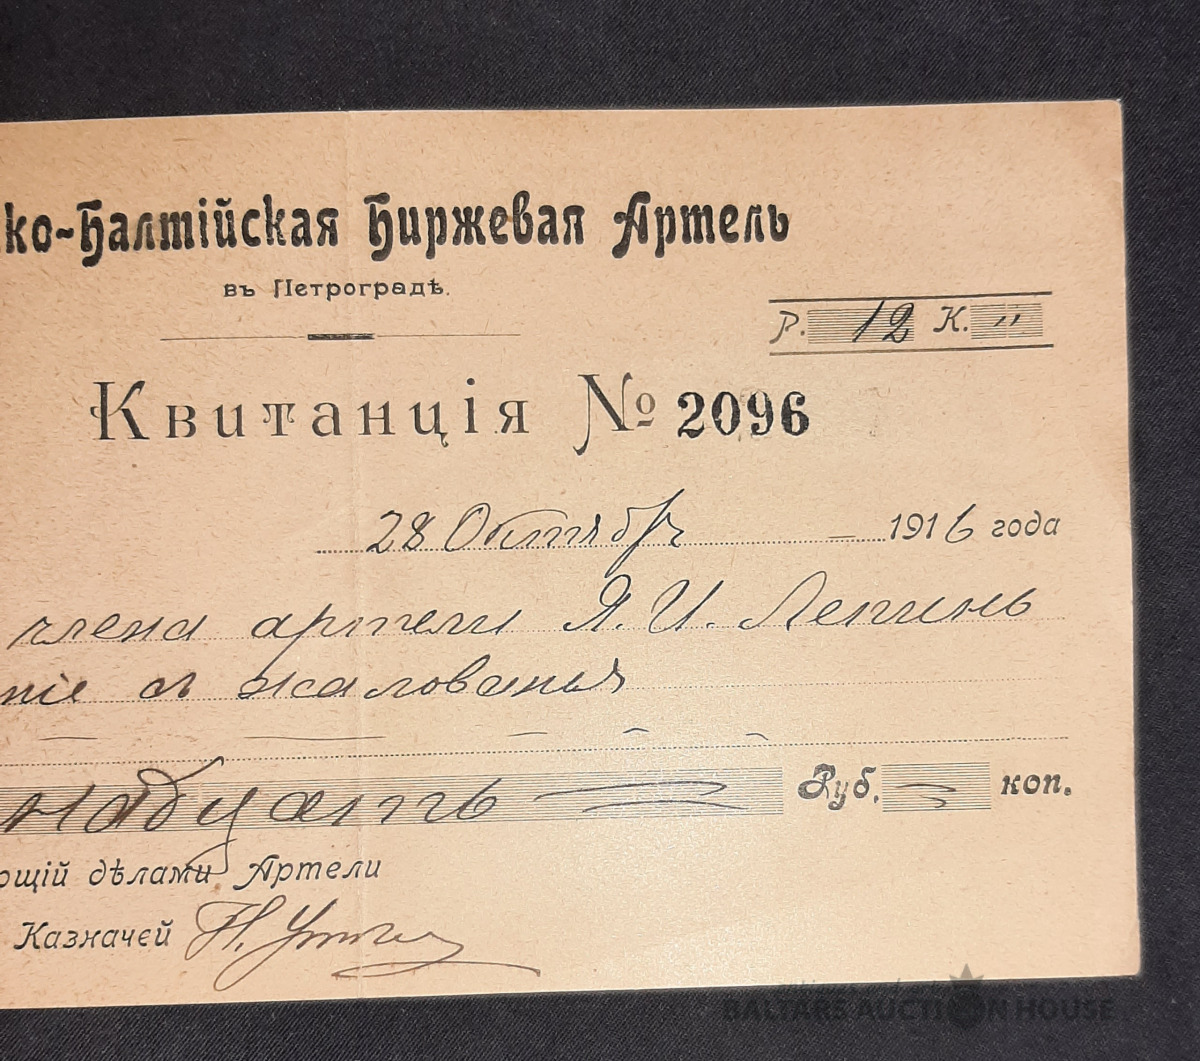 ко-Балтійская Биржевая Артель
въ Петроградѣ.
Р. 12 К. "
Квитанція № 2096
28 Октябр 1916 года
члена артели Я. И. Лепинь
ніе съ жалованья
надцать Руб. коп.
ющій дѣлами Артели
Казначей
BALTARS AUCTION HOUSE